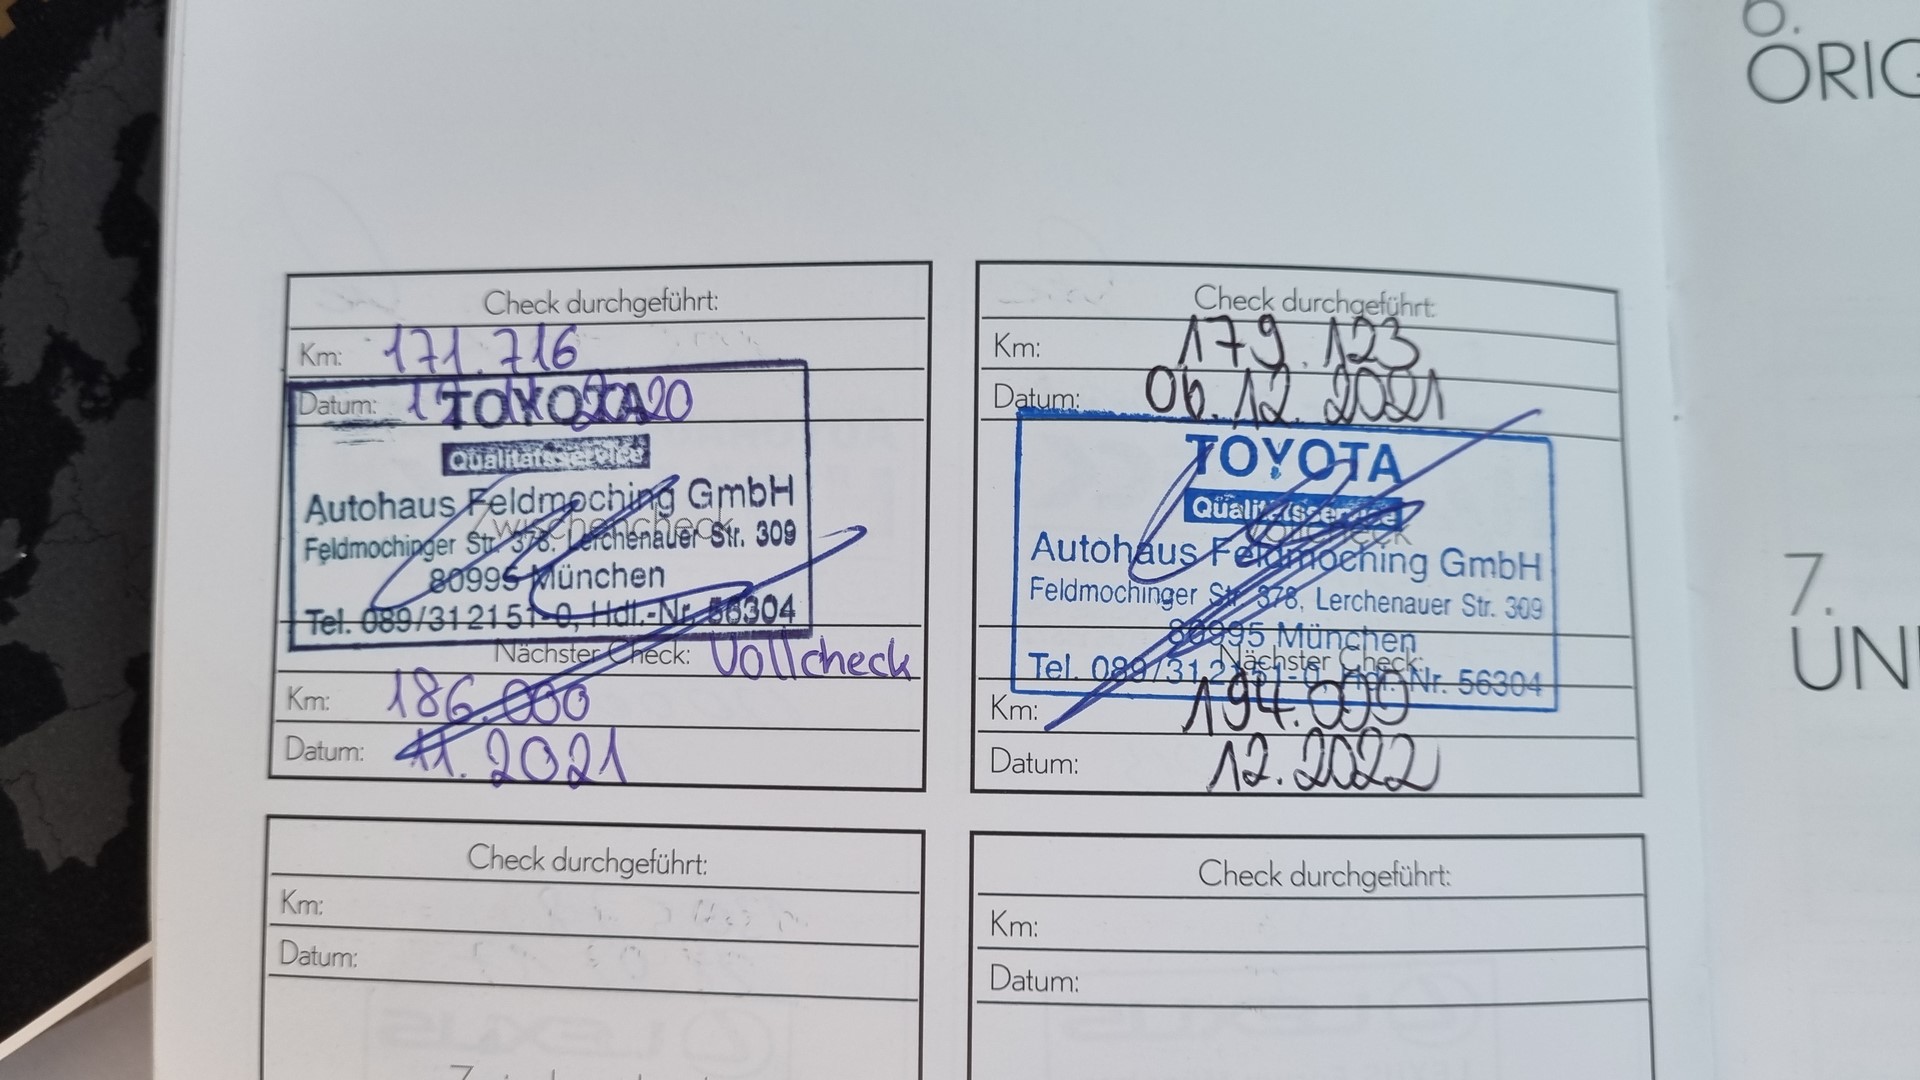 6.
ORIG
Check durchgeführt:
Km: 171.716
Datum: 2020
TOYOTA
Qualitätsservice
Autohaus Feldmoching GmbH
Zwischencheck
Feldmochinger Str. 378, Lerchenauer Str. 309
80995 München
Tel. 089/312151-0, Hdl.-Nr. 56304
Nächster Check: Vollcheck
Km: 186.000
Datum: 11.2021
Check durchgeführt:
Km: 179.123
Datum: 06.12.2021
TOYOTA
Qualitätsservice
Vollcheck
Autohaus Feldmoching GmbH
Feldmochinger Str. 378, Lerchenauer Str. 309
80995 München
Nächster Check:
Tel. 089/312151-0, Hdl.-Nr. 56304
Km: 194.000
Datum: 12.2022
7.
UN
Check durchgeführt:
Km:
Datum:
LEXUS
Check durchgeführt:
Km:
Datum:
LEXUS